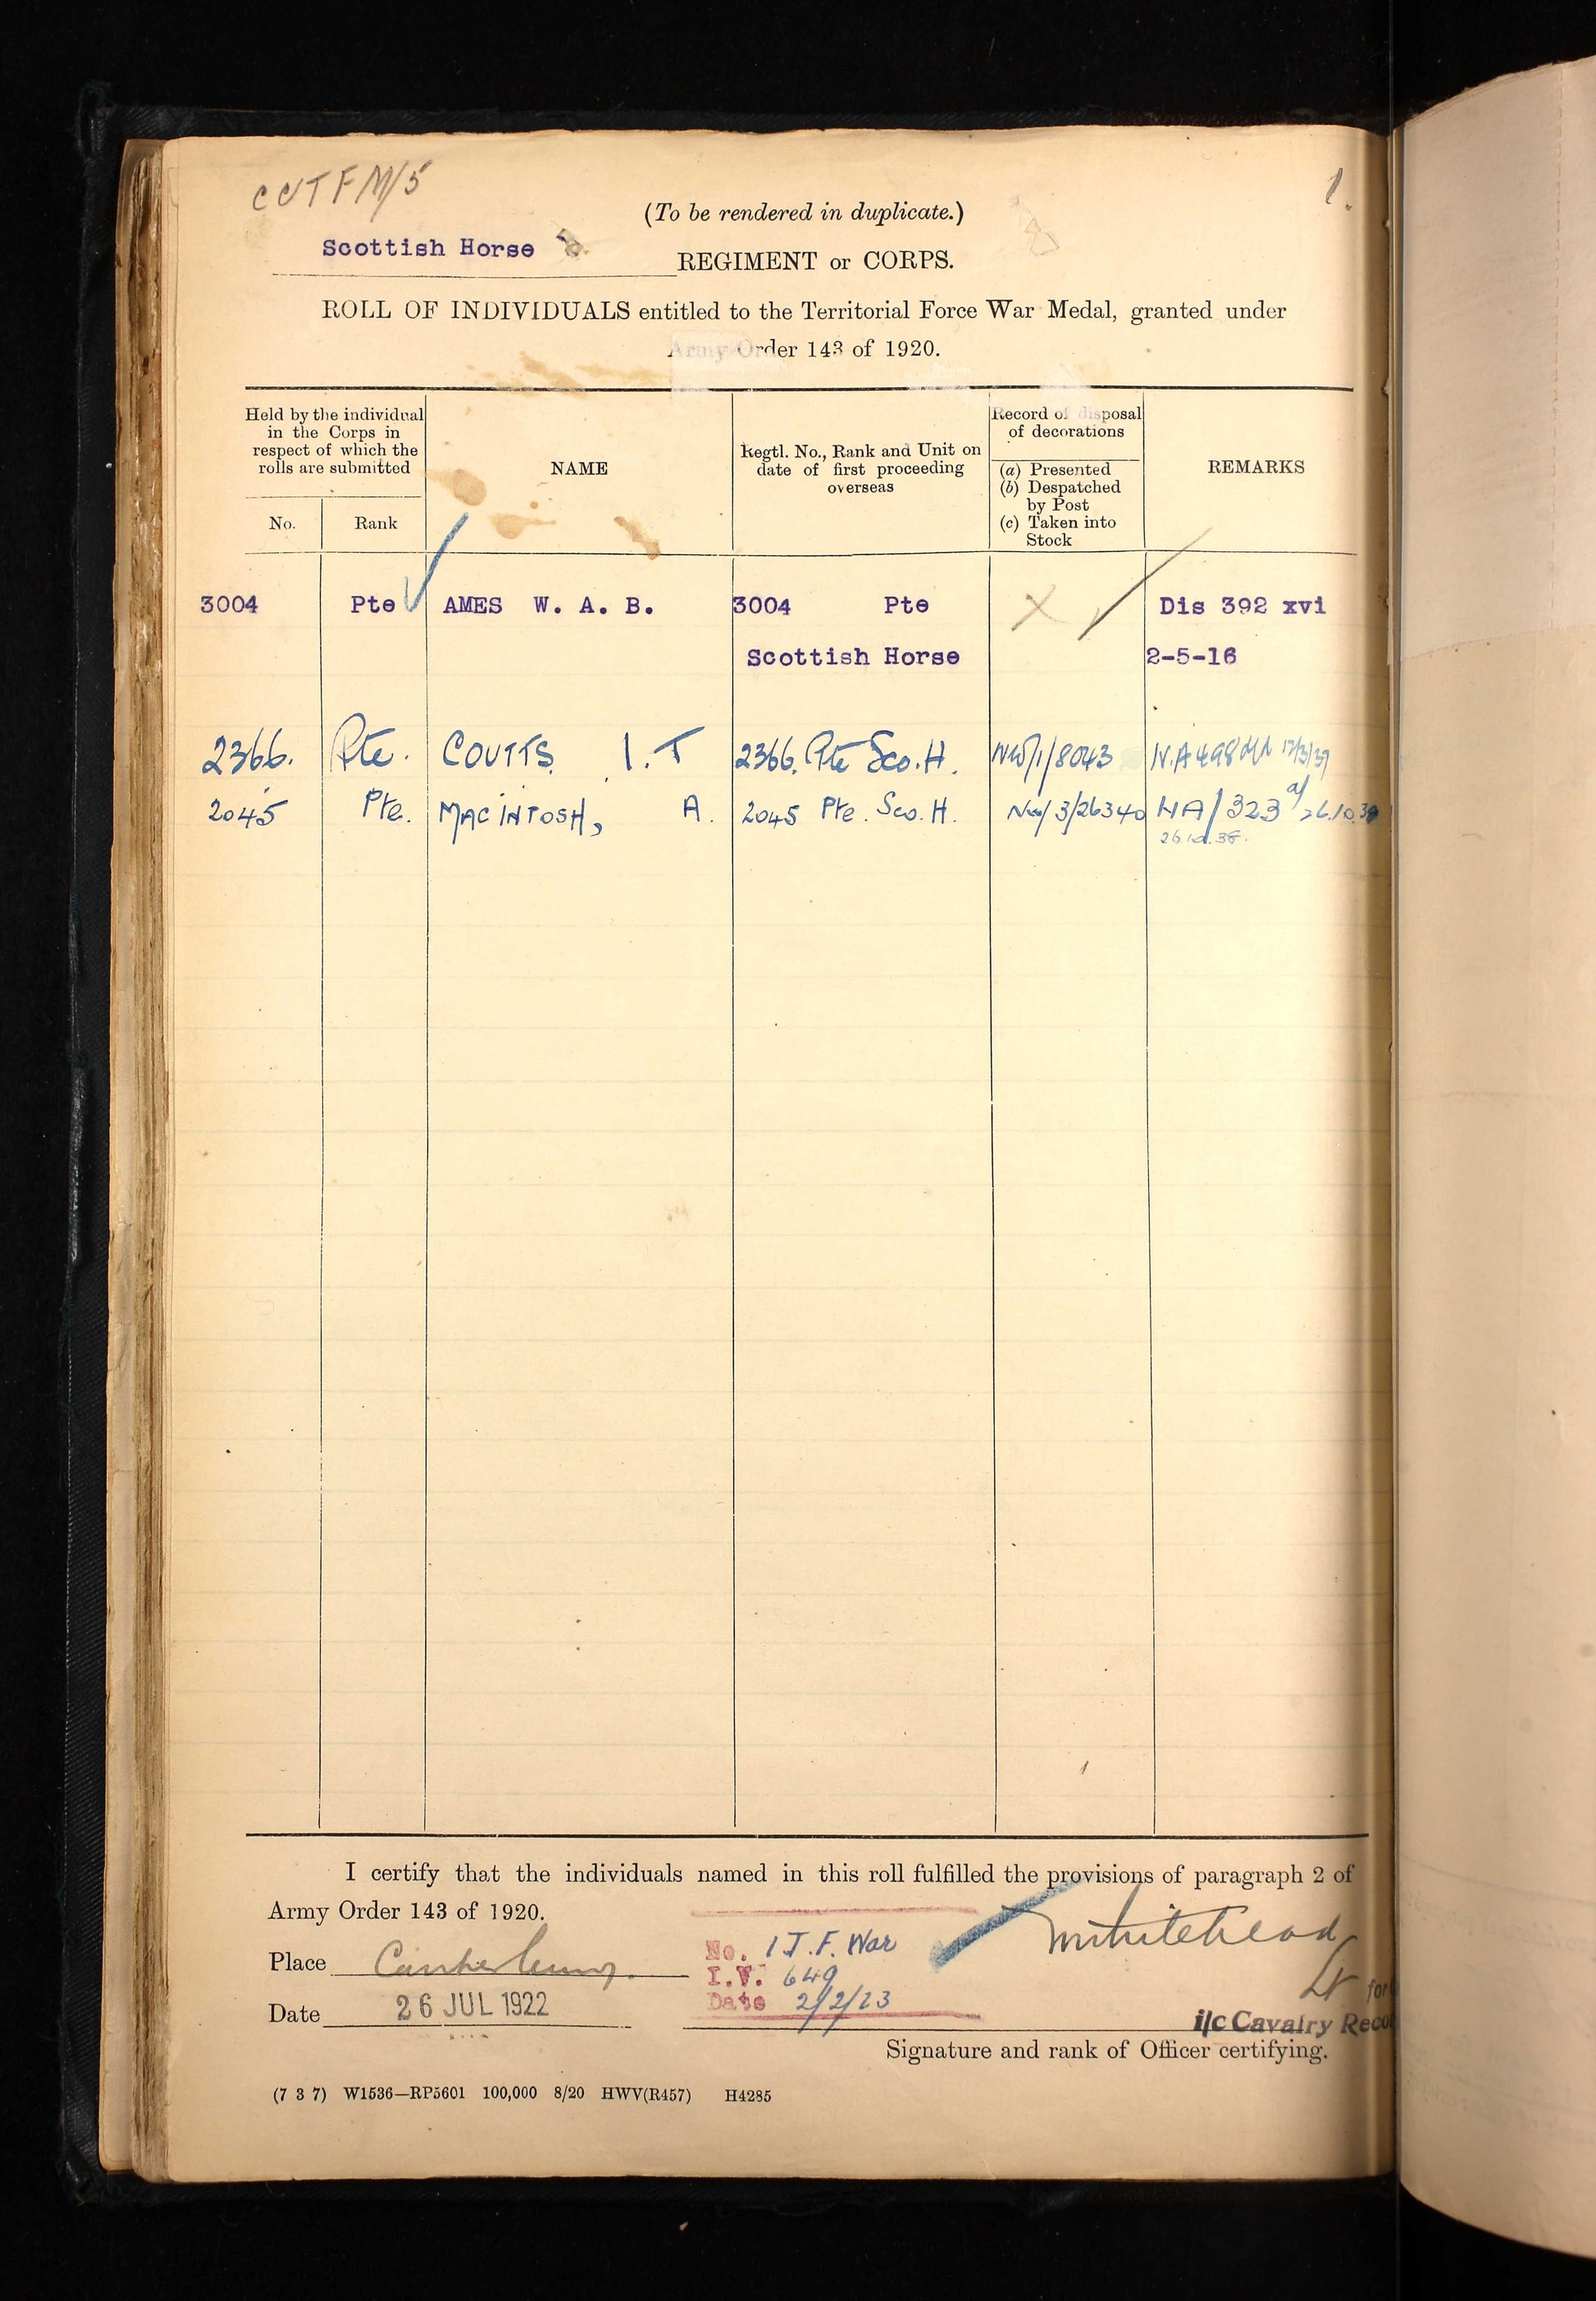 CUTFM/5
1.
(To be rendered in duplicate.)
Scottish Horse REGIMENT or CORPS.
ROLL OF INDIVIDUALS entitled to the Territorial Force War Medal, granted under
Army Order 143 of 1920.
Held by the individual
in the Corps in
respect of which the
rolls are submitted
No.
Rank
NAME
Regtl. No., Rank and Unit on
date of first proceeding
overseas
Record of disposal
of decorations
(a) Presented
(b) Despatched
by Post
(c) Taken into
Stock
REMARKS
3004 Pte AMES W. A. B. 3004 Pte X Dis 392 xvi
Scottish Horse 2-5-16
2366. Pte. COUTTS. I. T 2366. Pte Sco. H. NW/1/8043 N.A 498 12/3/37
2045 Pte. MACINTOSH, A. 2045 Pte. Sco. H. NW/3/26340 NA/323 26.10.38
26.10.38.
I certify that the individuals named in this roll fulfilled the provisions of paragraph 2 of
Army Order 143 of 1920.
Place Canterbury.
Date 26 JUL 1922
No. 1 T.F. War
I.V. 649
Date 2/2/23
Whitehead
Lt for
i/c Cavalry Reco
Signature and rank of Officer certifying.
(7 3 7) W1536—RP5601 100,000 8/20 HWV(R457) H4285